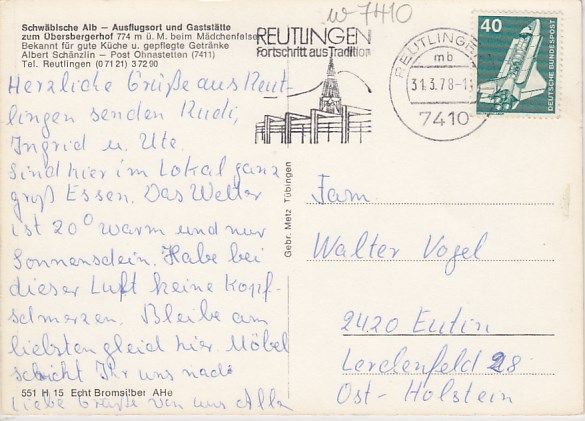 w 7410
Schwäbische Alb – Ausflugsort und Gaststätte
zum Übersbergerhof 774 m ü. M. beim Mädchenfelsen
Bekannt für gute Küche u. gepflegte Getränke
Albert Schänzlin – Post Ohnastetten (7411)
Tel. Reutlingen (07121) 37290
REUTLINGEN
Fortschritt aus Tradition
REUTLINGEN
mb
31.3.78-1
7410
40
DEUTSCHE BUNDESPOST
Herzliche Grüße aus Reut-
lingen senden Rudi,
Ingrid u. Ute.
Sind hier im Lokal ganz
groß Essen. Das Wetter
ist 20° warm und nur
Sonnenschein. Habe bei
dieser Luft keine Kopf-
schmerzen. Bleibe am
liebsten gleich hier Möbel
schickt Ihr uns nach
Liebe Grüße von uns Allen
551 H 15 Echt Bromsilber AHe
Gebr. Metz Tübingen
Fam.
Walter Vogel
2420 Eutin
Lerelenfeld 28
Ost-Holstein